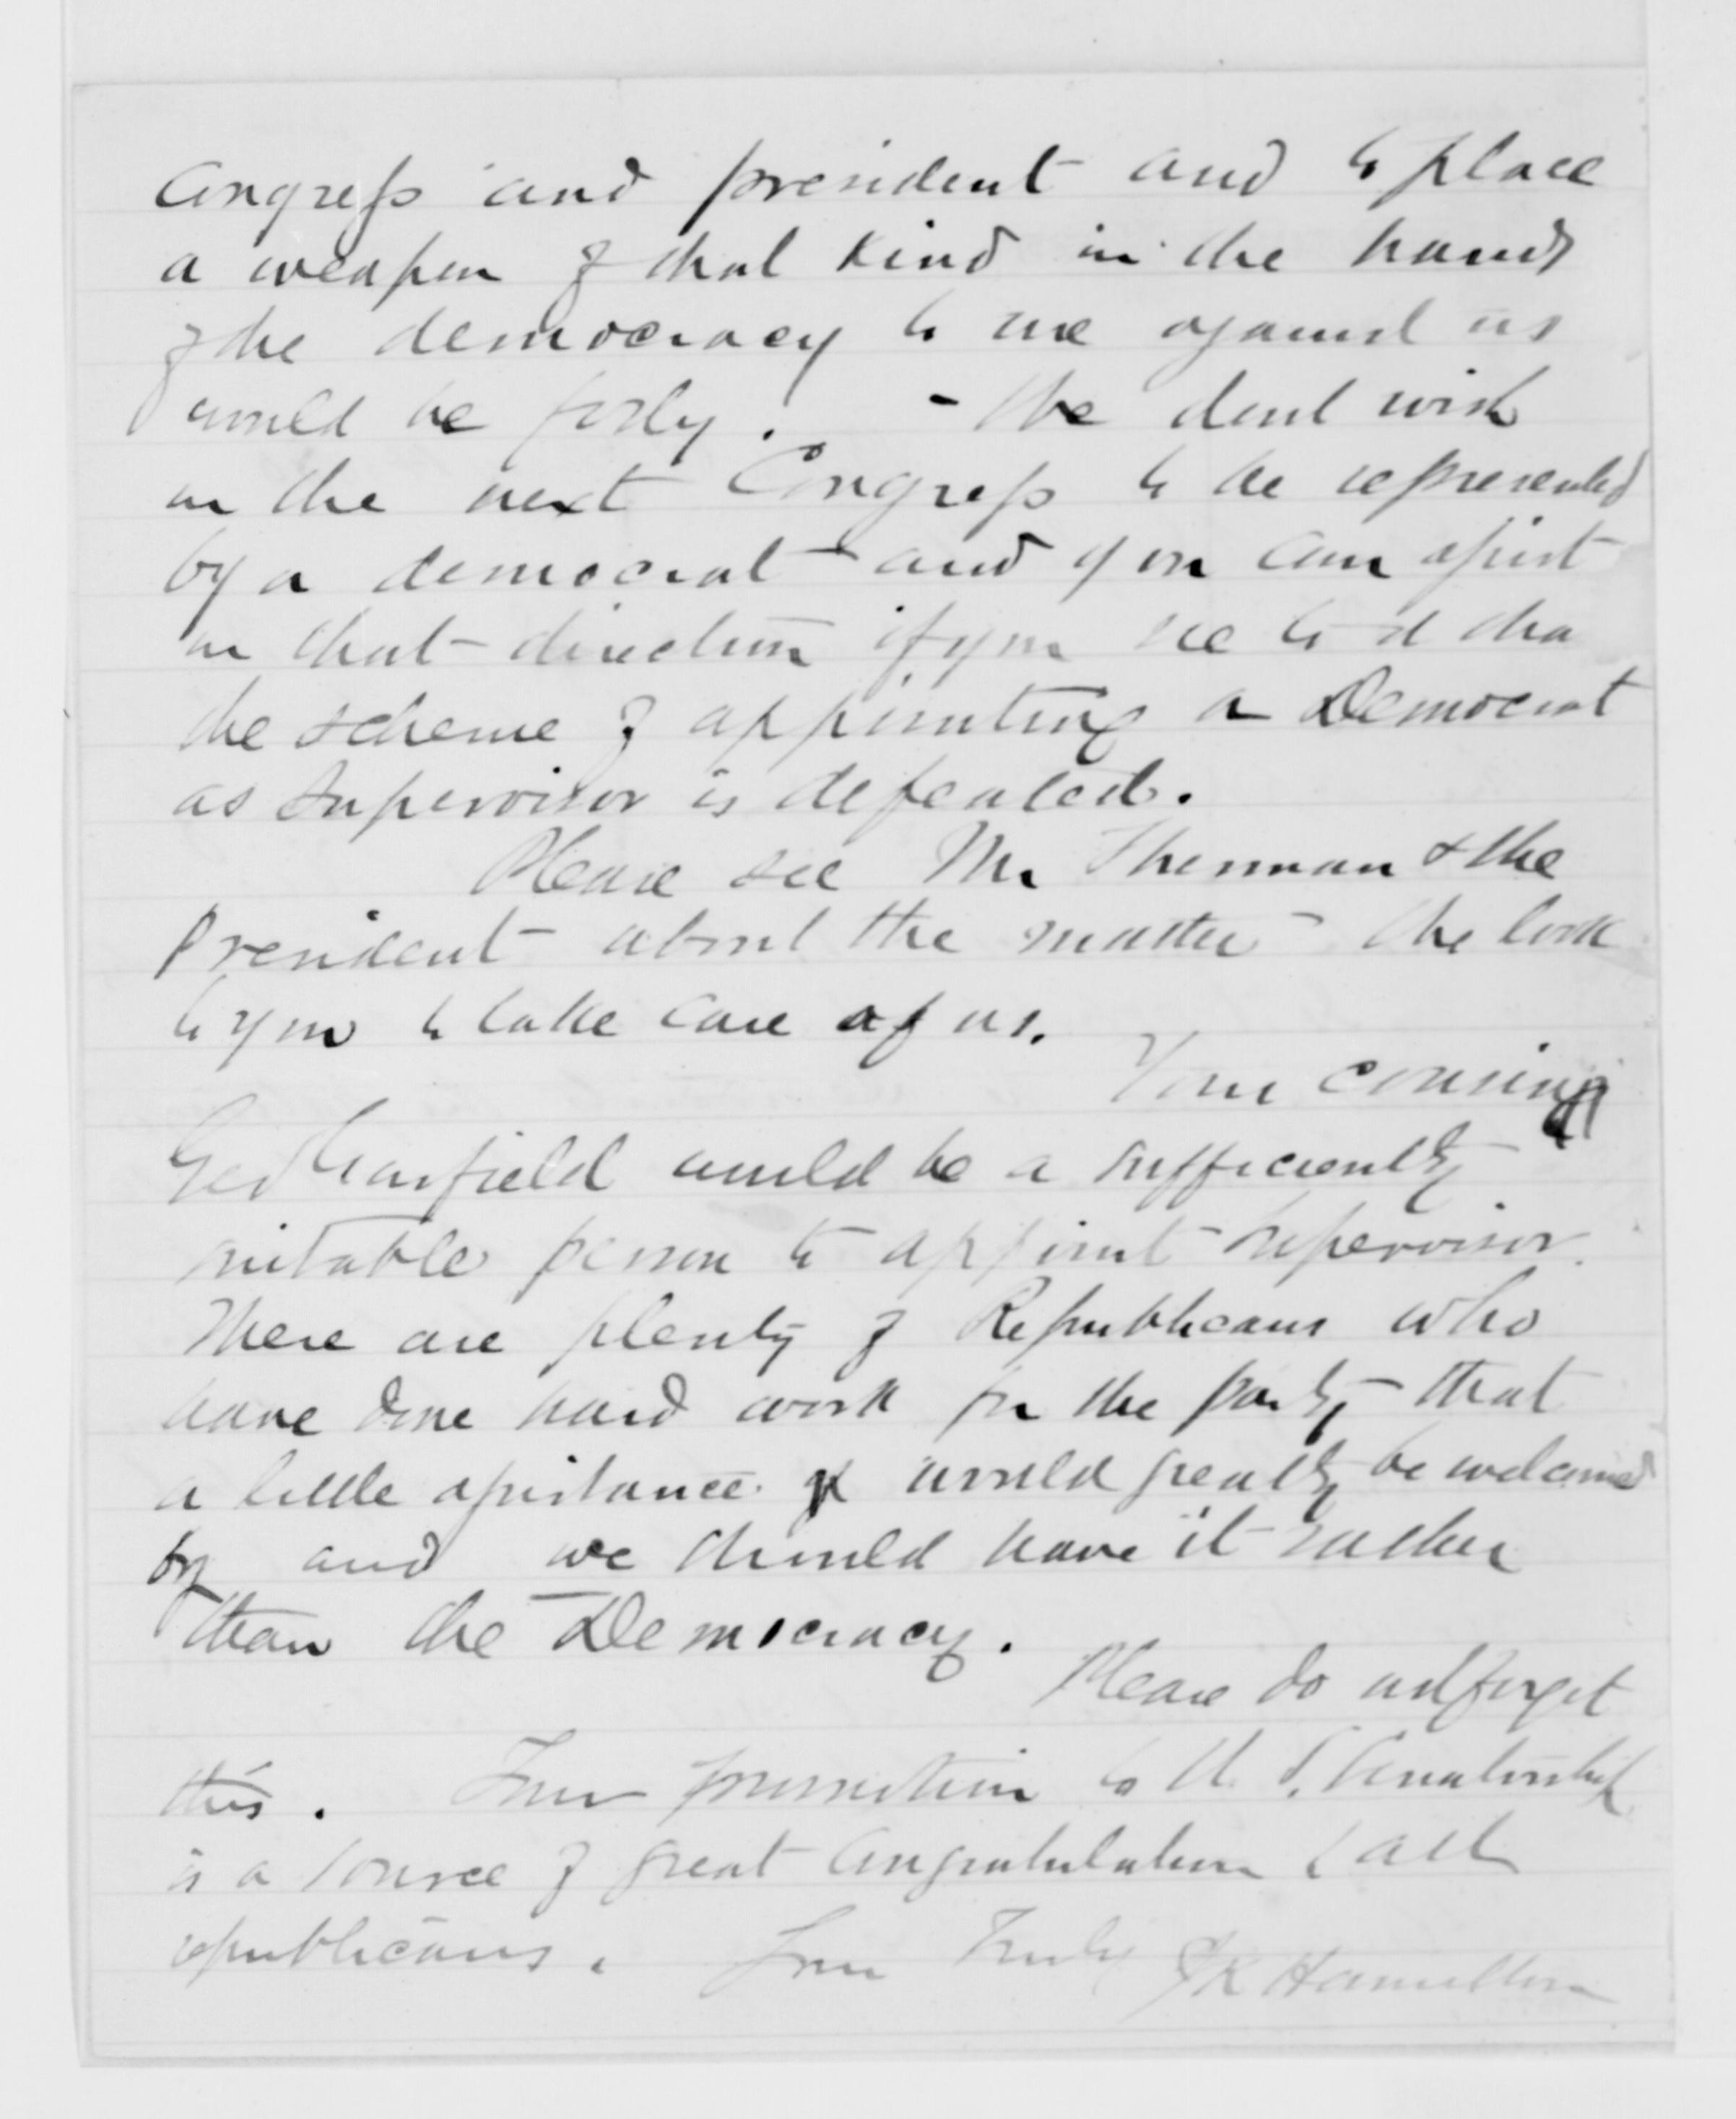 Congress and president and to place
a weapon of that kind in the hands
of the democracy to use against us
would be folly. - We dont wish
in the next Congress to be represented
by a democrat - and you can assist
in that direction if you see to it tha
the scheme of appointing a Democrat
as Supervisor is defeated.
Please see Mr Sherman & the
President about the matter - We look
to you to take care of us.
Your cousin
Geo Garfield would be a sufficiently
suitable person to appoint supervisor.
There are plenty of Republicans who
have done hard work for the party that
a little assistance would greatly be welcomed
by and we should have it rather
than the Democracy.
Please do not forget
this. Your promotion to U. S. Senatorship
is a source of great congratulation to all
republicans. Your Truly JK Hamilton